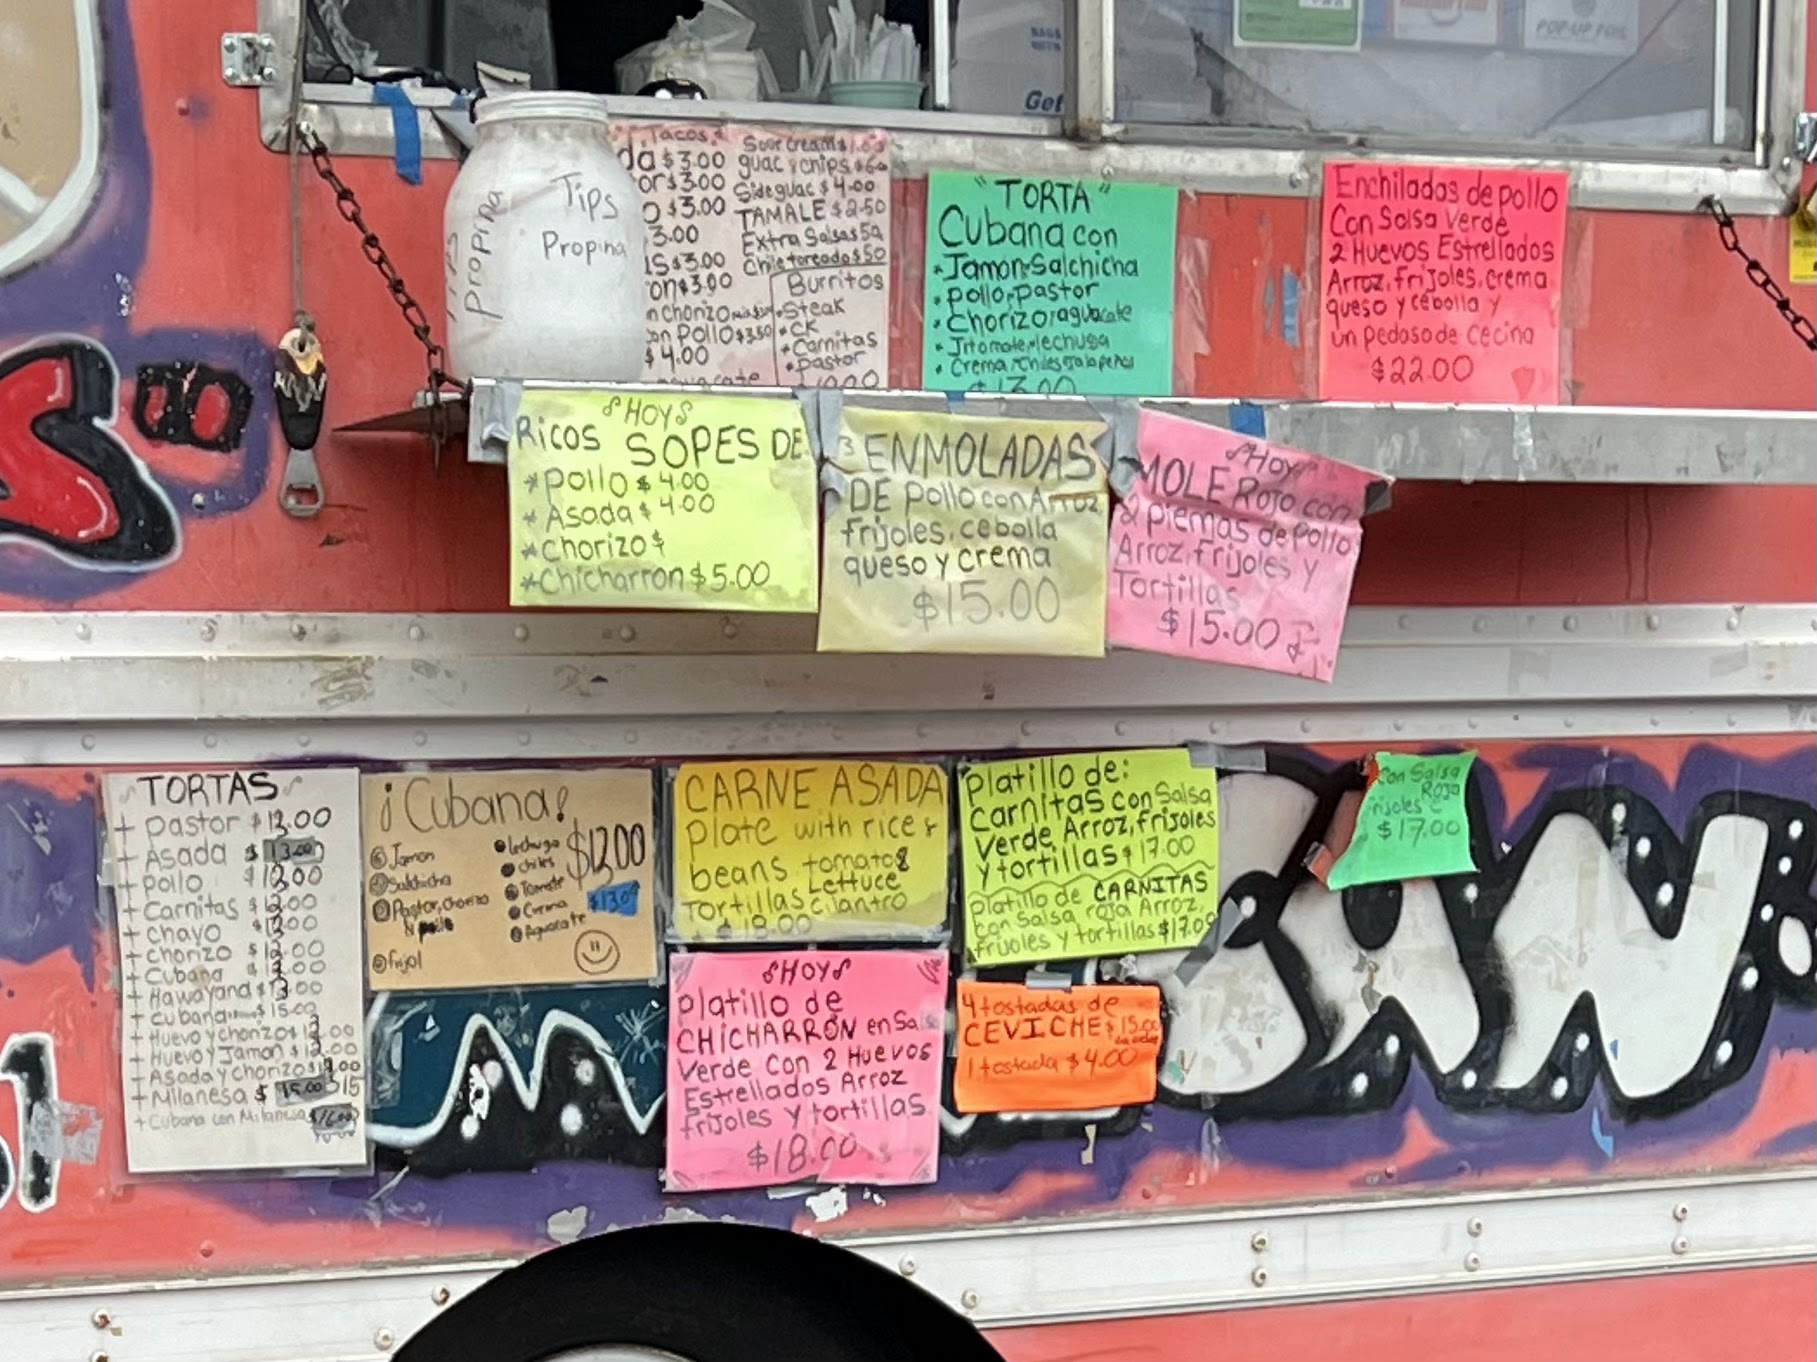 Get
POP-UP FOIL
Tips
Propina
PROPINA
Tacos
$3.00
$3.00
$3.00
3.00
$3.00
$3.00
n chorizo
on Pollo $3.50
$4.00
Sour cream
guac y chips
Side guac $4.00
TAMALE $2.50
Extra Salsas
Chile toreado
Burritos
• Steak
• CK
• Carnitas
• Pastor
"TORTA"
Cubana con
• Jamon, Salchicha
• pollo, pastor
• Chorizo, aguacate
• Jitomate, lechuga
• Crema
$13.00
Enchiladas de pollo
Con Salsa Verde
2 Huevos Estrellados
Arroz, frijoles, crema
queso y cebolla y
un pedaso de cecina
$22.00
HOY
Ricos SOPES DE
* Pollo $4.00
* Asada $4.00
* chorizo $
* Chicharron $5.00
3 ENMOLADAS
DE pollo con Arroz
frijoles, cebolla
queso y crema
$15.00
Hoy
MOLE Rojo con
2 piernas de pollo
Arroz, Frijoles y
Tortillas
$15.00
TORTAS
+ pastor $13.00
+ Asada $13.00
+ pollo
+ Carnitas
+ Chayo
+ chorizo
+ Cubana
+ Hawayana
+ Cubana $15.00
+ Huevo y chorizo
+ Huevo y Jamon
+ Asada y chorizo
+ Milanesa $15.00
+ Cubana con Milanesa
¡Cubana!
Jamon
Salchicha
Pastor, chorizo
& pollo
frijol
lechuga
chiles
Tomate
Crema
Aguacate
$13.00
CARNE ASADA
plate with rice &
beans tomatoe
Tortillas Lettuce
cilantro
$18.00
Platillo de:
Carnitas con Salsa
Verde, Arroz, frijoles
y tortillas $17.00
platillo de CARNITAS
con Salsa roja Arroz,
frijoles y tortillas $17.00
con Salsa
Roja
frijoles
$17.00
HOY
platillo de
CHICHARRÓN en Salsa
Verde con 2 Huevos
Estrellados Arroz
frijoles y tortillas
$18.00
4 tostadas de
CEVICHE $15.00
1 tostada $4.00